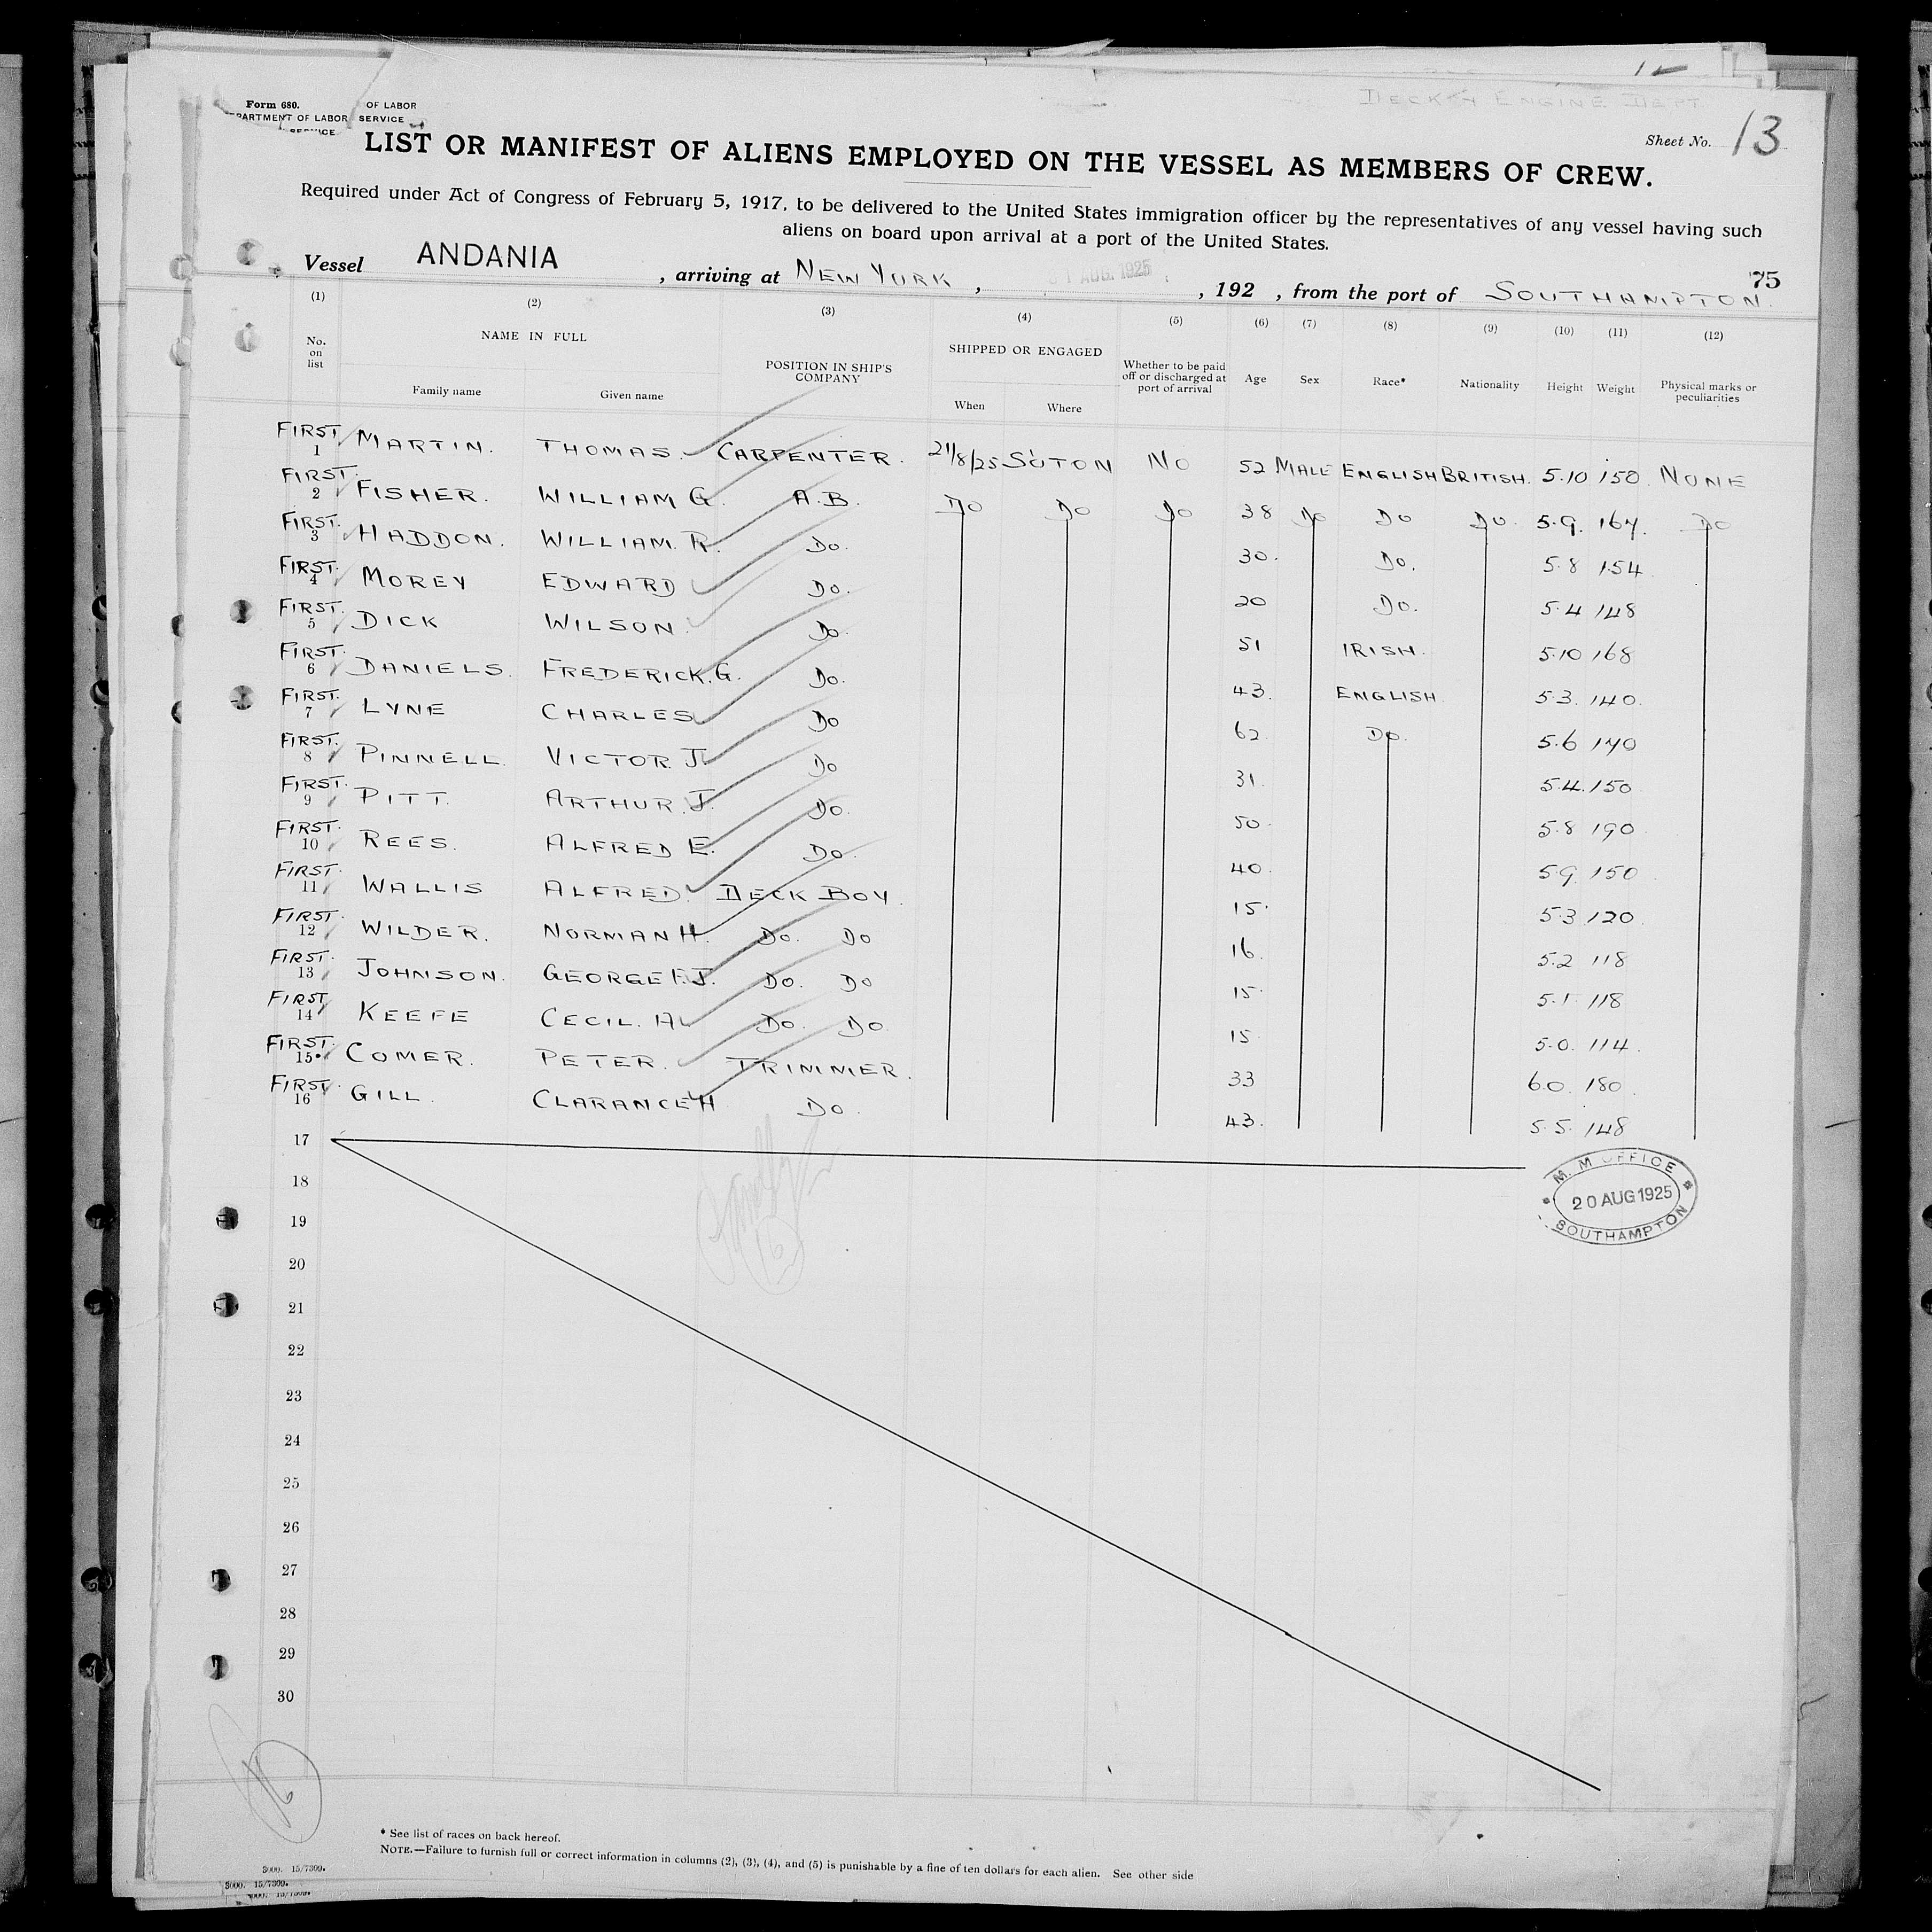 DECK & ENGINE DEPT
Form 680.
OF LABOR
DEPARTMENT OF LABOR SERVICE
SERVICE
Sheet No. 13
LIST OR MANIFEST OF ALIENS EMPLOYED ON THE VESSEL AS MEMBERS OF CREW.
Required under Act of Congress of February 5, 1917, to be delivered to the United States immigration officer by the representatives of any vessel having such
aliens on board upon arrival at a port of the United States.
75
Vessel ANDANIA , arriving at NEW YORK , 31 AUG. 1925 , 192 , from the port of SOUTHAMPTON.
(1) (2) (3) (4) (5) (6) (7) (8) (9) (10) (11) (12)
No. on list NAME IN FULL Family name Given name POSITION IN SHIP'S COMPANY SHIPPED OR ENGAGED When Where Whether to be paid off or discharged at port of arrival Age Sex Race* Nationality Height Weight Physical marks or peculiarities
FIRST 1 MARTIN. THOMAS. CARPENTER. 21/8/25 S'OTON NO 52 MALE ENGLISH BRITISH. 5.10 150 NONE
FIRST. 2 FISHER. WILLIAM G. A.B. Do Do Do 38 Do Do Do. 5.9. 164. Do
FIRST. 3 HADDON. WILLIAM. R. Do. 30. Do. 5.8 154
FIRST. 4 MOREY EDWARD Do. 20 Do. 5.4 148
FIRST. 5 DICK WILSON. Do. 51 IRISH. 5.10 168
FIRST. 6 DANIELS. FREDERICK.G. Do. 43. ENGLISH. 5.3. 140.
FIRST. 7 LYNE CHARLES Do 62. Do. 5.6 140
FIRST. 8 PINNELL. VICTOR. J. Do 31. 5.4. 150
FIRST. 9 PITT. ARTHUR. J. Do. 50. 5.8 190
FIRST. 10 REES. ALFRED E. Do. 40. 5.9. 150
FIRST. 11 WALLIS ALFRED. DECK BOY. 15. 5.3. 120
FIRST. 12 WILDER. NORMAN H. Do. Do 16. 5.2 118
FIRST. 13 JOHNSON. GEORGE F.J. Do. Do 15. 5.1. 118
FIRST 14 KEEFE CECIL. A. Do. Do. 15. 5.0. 114.
FIRST. 15 COMER. PETER. TRIMMER. 33 6.0. 180.
FIRST. 16 GILL. CLARANCE H Do. 43. 5.5. 148
17
M. M OFFICE
20 AUG 1925
SOUTHAMPTON
18
19
16
20
21
22
23
24
25
26
27
28
29
30
16
* See list of races on back hereof.
NOTE.—Failure to furnish full or correct information in columns (2), (3), (4), and (5) is punishable by a fine of ten dollars for each alien. See other side
3000. 15/7309.
3000. 15/7309.
3000. 15/7309.